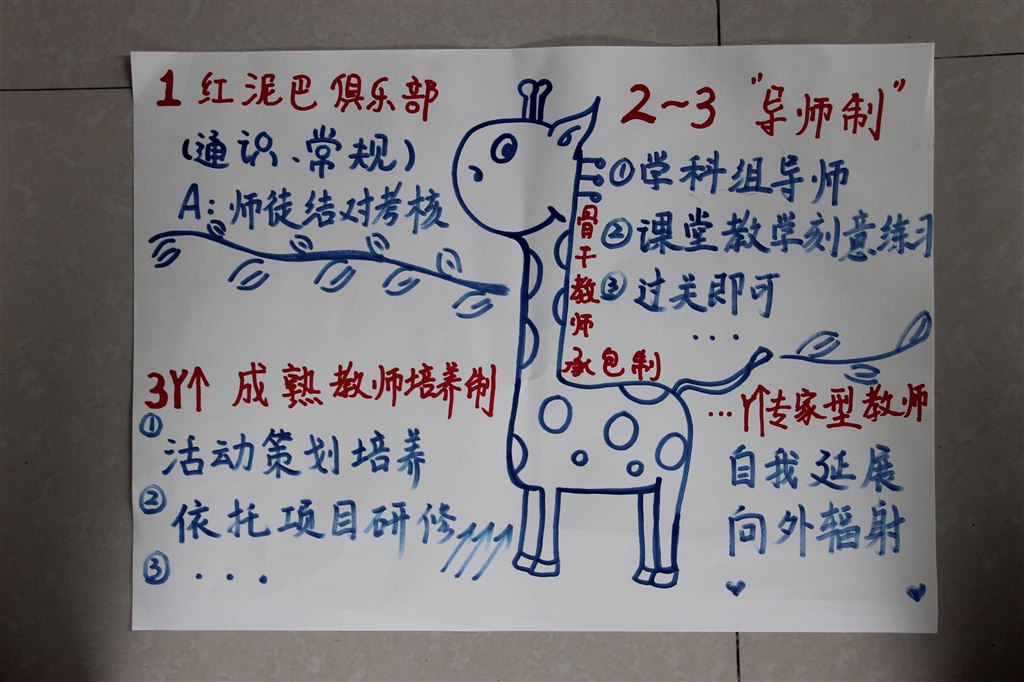 1 红泥巴俱乐部
(通识、常规)
A:师徒结对考核
2~3 "导师制"
①学科组导师
②课堂教学刻意练习
③过关即可
...
骨干教师
承包制
3Y↑ 成熟教师培养制
①
活动策划培养
②
依托项目研修
③ ...
...Y↑专家型教师
自我延展
向外辐射